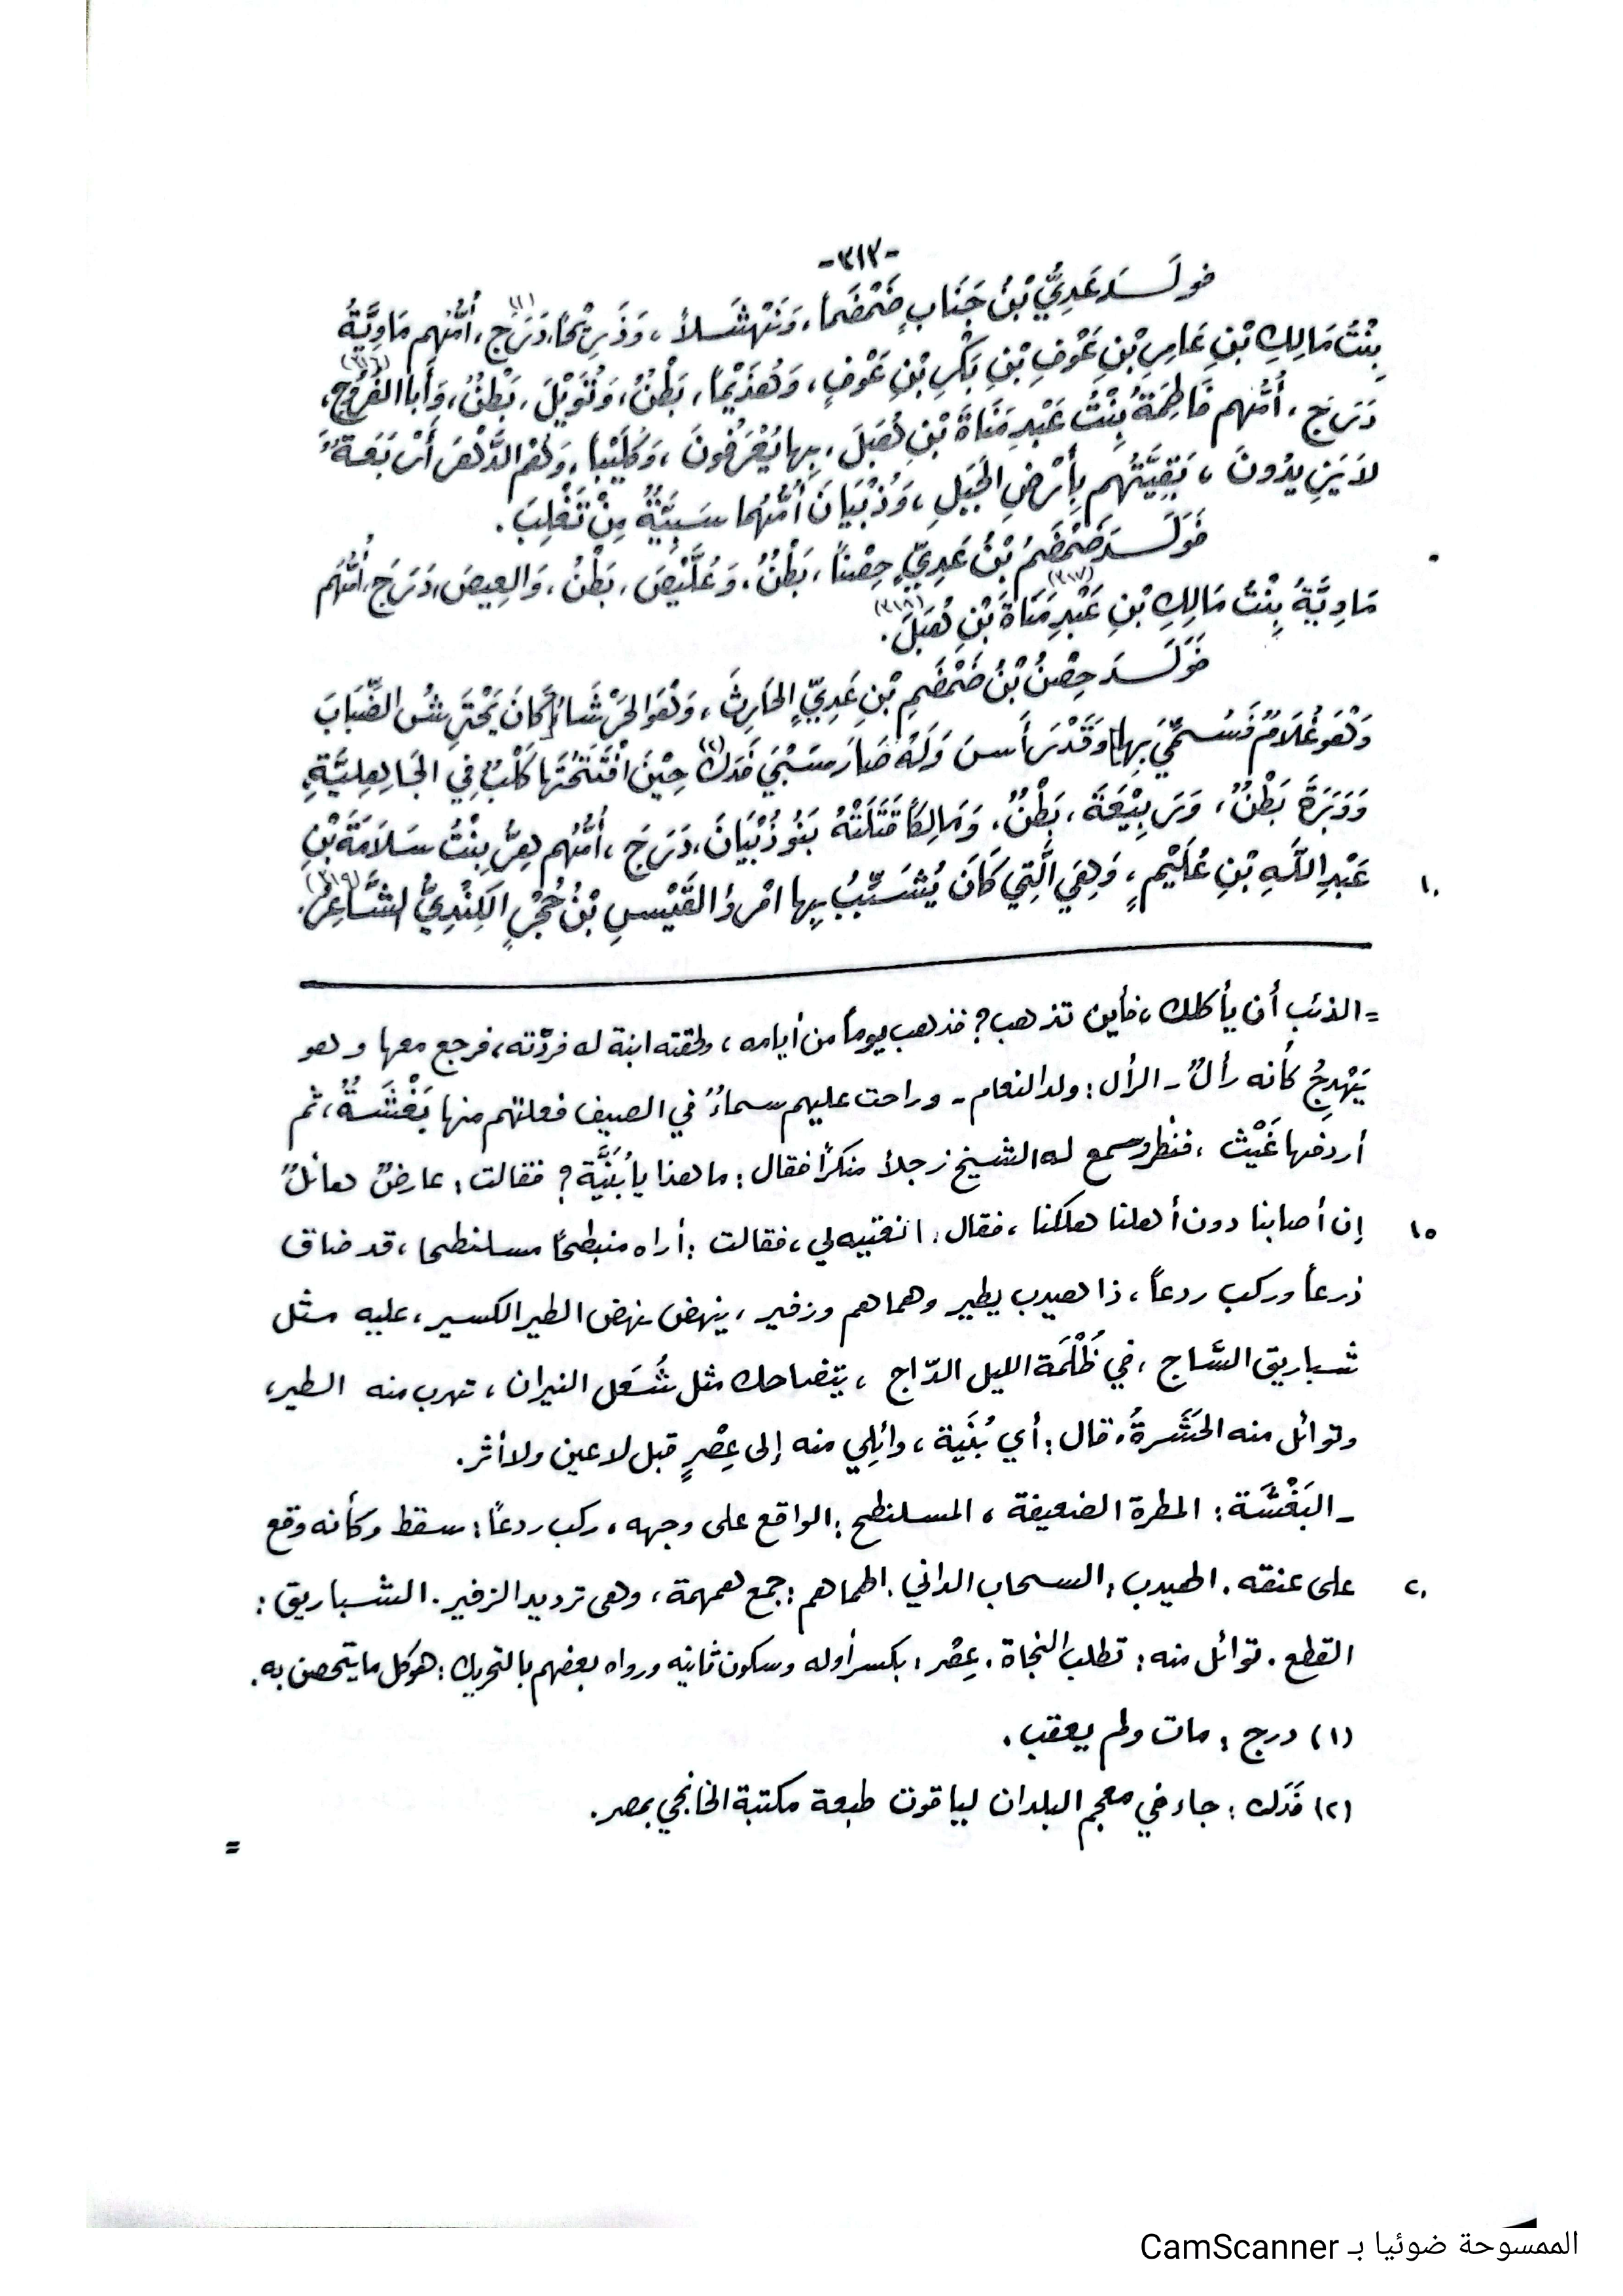 -٣١٣-
فولَـدَ عَدِيُّ بْنُ جَنَابٍ ضَمْضَماً، وَنَهْشَلاً، وَذَرِيْحاً، دَرَجَ(١)، أُمُّهُم مَاوِيَّةُ
بِنْتُ مَالِكِ بْنِ عَامِرِ بْنِ عَوْفِ بْنِ بَكْرِ بْنِ عَوْفٍ، وَهُذَيْماً، بَطْنٌ، وَنُوَيْلَ، بَطْنٌ، وَأَبَا الفُرُوجِ(٣١٦)،
دَرَجَ، أُمُّهم فَاطِمَةُ بِنْتُ عَبْدِ مَنَاةَ بْنِ هُبَلَ، بِها يُعْرَفُونَ، وَكُلَيْباً، وَهُمُ الدَّهْرَ أَرْبَعَةٌ
لاَ يَزِيدُونَ، بَقِيَّتُهُم بِأَرْضِ الجَبَلِ، وَذُبْيَانَ أُمُّهُما سَبِيَّةٌ مِنْ تَغْلِبَ.
فَوَلَـدَ ضَمْضَمُ بْنُ عَدِيٍّ حِصْناً، بَطْنٌ، وَعُلَّيْصَ، بَطْنٌ، وَالعِيصَ، دَرَجَ، أُمُّهُم
مَاوِيَّةُ بِنْتُ مَالِكِ بْنِ عَبْدِ مَنَاةَ(٣١٧) بْنِ هُبَلَ(٣١٨).
فَوَلَـدَ حِصْنُ بْنُ ضَمْضَمِ بْنِ عَدِيٍّ الحَارِثَ، وَهُوَ الحَرْشَاءُ [كَانَ يَحْتَرِشُ الضِّبَابَ
وَهُوَ غُلَامٌ فَسُمِّيَ بِها] وَقَدْ رَأَسَ وَلَهُ صَارَ سَبْيُ فَدَكَ(٢) حِيْنَ افْتَتَحَتْها كَلْبٌ فِي الجَاهِلِيَّةِ،
وَوَبَرَةَ بَطْنٌ، وَرَبِيْعَةَ، بَطْنٌ، وَمَالِكاً قَتَلَتْهُ بَنُو ذُبْيَانَ، دَرَجَ، أُمُّهُم هِرُّ بِنْتُ سَلاَمَةَ بْنِ
١٠ عَبْدِ اللَّهِ بْنِ عُلَيْمٍ، وَهِيَ الَّتِي كَانَ يُشَبِّبُ بِها امْرؤُ القَيْسِ بْنُ حُجْرٍ الكِنْدِيُّ الشَّاعِرُ(٣١٩).
= الذئب أن يأكلك، فأين تذهب؟ فذهب يوماً من أيامه، ولحقته ابنة له فردّته، فرجع معها وهو
يَهْدِجُ كأنه رأل ـ الرأل: ولد النعام ـ وراحت عليهم سماءٌ في الصيف فعلتهم منها بَغْشَةٌ، ثم
أردفها غَيْث، فنظر وسمع له الشيخ زجلاً منكراً فقال: ما هذا يا بُنَيَّة؟ فقالت: عارضٌ هائلٌ
١٥ إن أصابنا دون أهلنا هلكنا، فقال: انعتيه لي، فقالت: أراه منبطحاً مسلنطحا، قد ضاق
ذرعاً وركب ردعاً، ذا هيدب يطير وهماهم وزفير، ينهض نهض الطير الكسير، عليه مثل
شباريق السّاج، في ظُلْمَة الليل الدّاج، يتضاحك مثل شُعَل النيران، تهرب منه الطير،
وتوائل منه الحَشَرةُ، قال: أي بُنَية، وائلِي منه إلى عِصْرٍ قبل لا عين ولا أثر.
ـ البَغْشَة: المطرة الضعيفة، المسلنطح: الواقع على وجهه، ركب ردعاً: سقط وكأنه وقع
٢٠ على عنقه. الهيدب: السحاب الداني. الهماهم: جمع همهمة، وهي ترديد الزفير. الشباريق:
القطع. توائل منه: تطلب النجاة. عِصْر: بكسر أوله وسكون ثانيه ورواه بعضهم بالتحريك: هو كل ما يتحصن به.
(١) درج: مات ولم يعقب.
(٢) فَدَك: جاء في معجم البلدان لياقوت طبعة مكتبة الخانجي بمصر.
=
الممسوحة ضوئيا بـ CamScanner